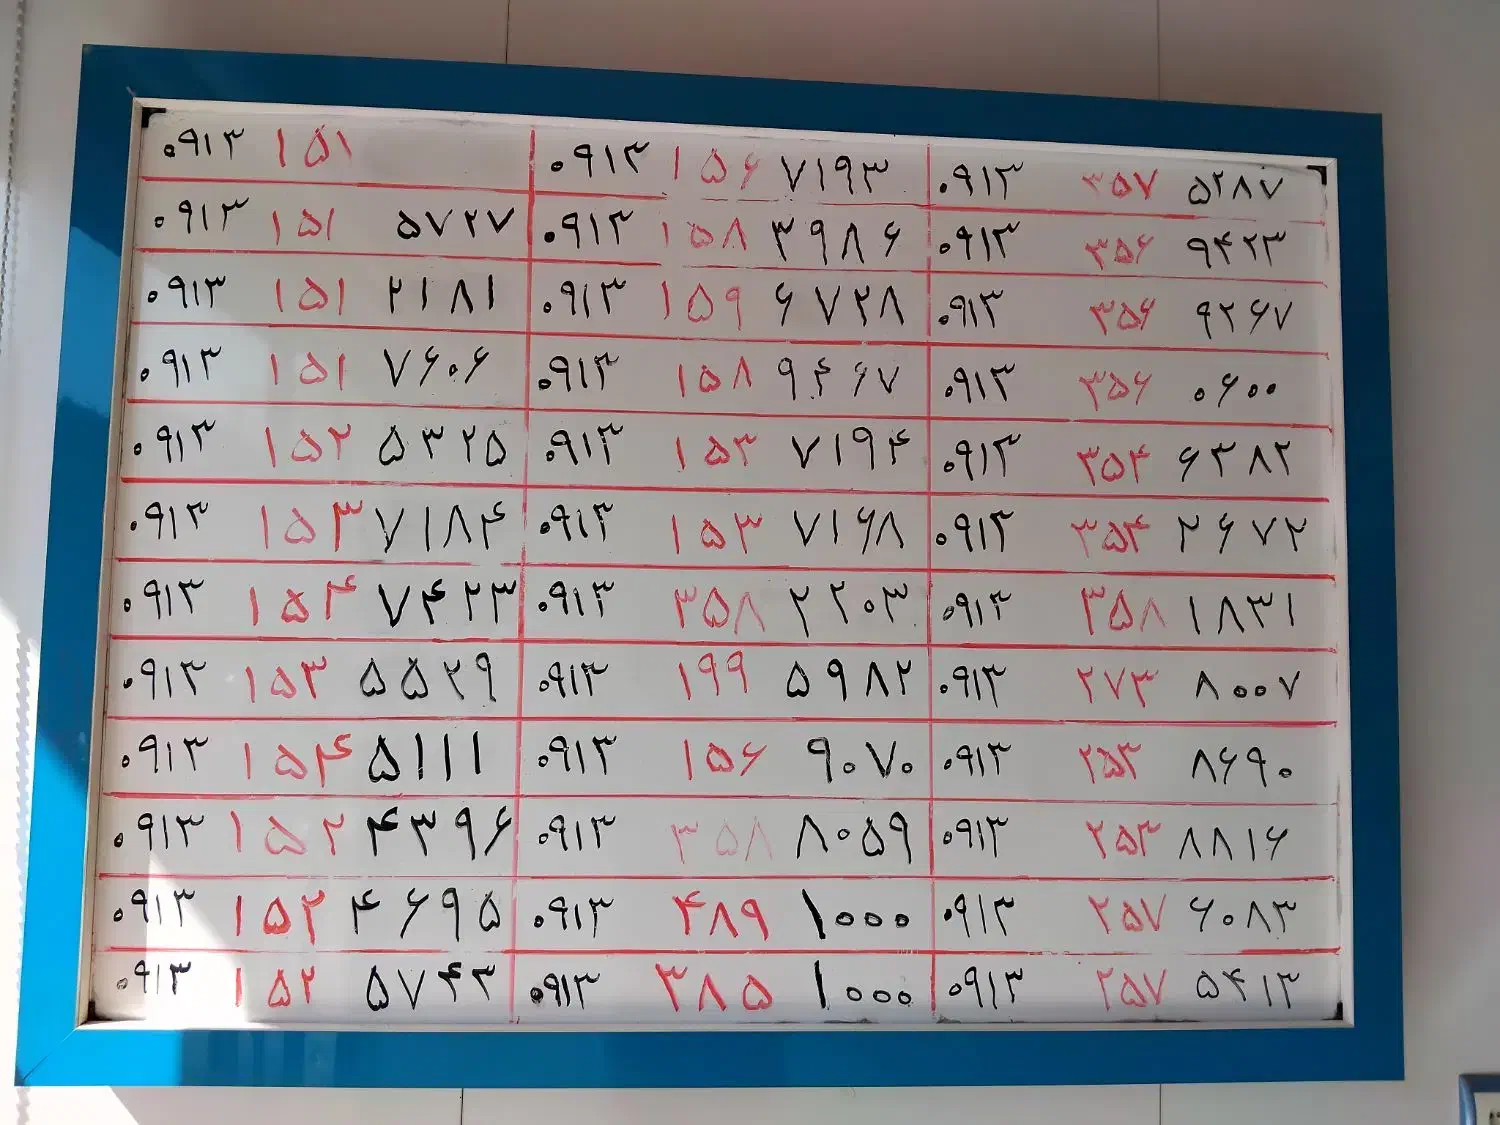 ۰۹۱۳ ۱۵۱
۰۹۱۳ ۱۵۱ ۵۷۲۷
۰۹۱۳ ۱۵۱ ۲۱۸۱
۰۹۱۳ ۱۵۱ ۷۶۰۶
۰۹۱۳ ۱۵۲ ۵۳۲۵
۰۹۱۳ ۱۵۳ ۷۱۸۴
۰۹۱۳ ۱۵۴ ۷۴۲۳
۰۹۱۳ ۱۵۳ ۵۵۲۹
۰۹۱۳ ۱۵۴ ۵۱۱۱
۰۹۱۳ ۱۵۲ ۴۳۹۶
۰۹۱۳ ۱۵۲ ۴۶۹۵
۰۹۱۳ ۱۵۲ ۵۷۴۳
۰۹۱۳ ۱۵۶ ۷۱۹۳
۰۹۱۳ ۱۵۸ ۳۹۸۶
۰۹۱۳ ۱۵۹ ۶۷۲۸
۰۹۱۳ ۱۵۸ ۹۴۶۷
۰۹۱۳ ۱۵۳ ۷۱۹۴
۰۹۱۳ ۱۵۳ ۷۱۶۸
۰۹۱۳ ۳۵۸ ۲۲۰۳
۰۹۱۳ ۱۹۹ ۵۹۸۲
۰۹۱۳ ۱۵۶ ۹۰۷۰
۰۹۱۳ ۳۵۸ ۸۰۵۹
۰۹۱۳ ۴۸۹ ۱۰۰۰
۰۹۱۳ ۳۸۵ ۱۰۰۰
۰۹۱۳ ۳۵۷ ۵۲۸۷
۰۹۱۳ ۳۵۶ ۹۴۲۳
۰۹۱۳ ۳۵۶ ۹۲۶۷
۰۹۱۳ ۳۵۶ ۰۶۰۰
۰۹۱۳ ۳۵۴ ۶۳۸۲
۰۹۱۳ ۳۵۴ ۲۶۷۲
۰۹۱۳ ۳۵۸ ۱۸۳۱
۰۹۱۳ ۲۷۳ ۸۰۰۷
۰۹۱۳ ۲۵۳ ۸۶۹۰
۰۹۱۳ ۲۵۳ ۸۸۱۶
۰۹۱۳ ۲۵۷ ۶۰۸۳
۰۹۱۳ ۲۵۷ ۵۴۱۳